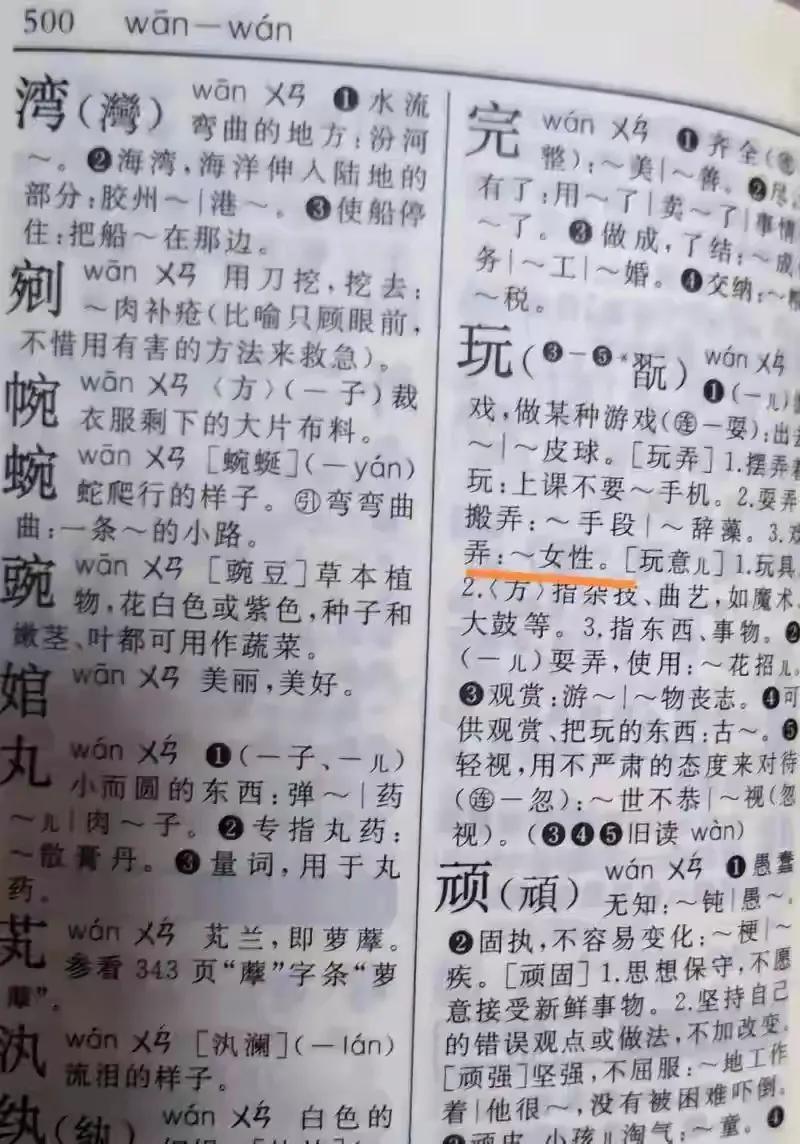 500 wān－wán
湾(灣) wān ㄨㄢ ❶水流
弯曲的地方：汾河
～。❷海湾，海洋伸入陆地的
部分：胶州～|港～。❸使船停
住：把船～在那边。
剜 wān ㄨㄢ 用刀挖，挖去：
～肉补疮(比喻只顾眼前，
不惜用有害的方法来救急)。
帵 wān ㄨㄢ 〈方〉(一子)裁
衣服剩下的大片布料。
蜿 wān ㄨㄢ [蜿蜒](－yán)
蛇爬行的样子。㊁弯弯曲
曲：一条～的小路。
豌 wān ㄨㄢ [豌豆]草本植
物，花白色或紫色，种子和
嫩茎、叶都可用作蔬菜。
婠 wān ㄨㄢ 美丽，美好。
丸 wán ㄨㄢˊ ❶(一子、一儿)
小而圆的东西：弹～|药
～儿|肉～子。❷专指丸药：
～散膏丹。❸量词，用于丸
药。
芄 wán ㄨㄢˊ 芄兰，即萝藦。
参看 343 页“藦”字条“萝
藦”。
汍 wán ㄨㄢˊ [汍澜](－lán)
流泪的样子。
纨(紈) wán ㄨㄢˊ 白色的
完 wán ㄨㄢˊ ❶齐全(
整)：～美|～善。❷尽，
有了：用～了|卖～了|事情
～了。❸做成，了结：～成
务|～工|～婚。❹交纳：～粮
～税。
玩(❸－❺*翫) wán ㄨㄢˊ
❶(一儿)
戏，做某种游戏(㊣一耍)：出去
～|～皮球。[玩弄]1.摆弄着
玩：上课不要～手机。2.耍弄
搬弄：～手段|～辞藻。3.戏
弄：～女性。[玩意儿]1.玩具
2.〈方〉指杂技、曲艺，如魔术、
大鼓等。3.指东西、事物。❷
(一儿)耍弄，使用：～花招儿。
❸观赏：游～|～物丧志。❹可
供观赏、把玩的东西：古～。❺
轻视，用不严肃的态度来对待
(㊣一忽)：～世不恭|～视(忽
视)。(❸❹❺旧读 wàn)
顽(頑) wán ㄨㄢˊ ❶愚蠢
无知：～钝|愚～。
❷固执，不容易变化：～梗|～
疾。[顽固]1.思想保守，不愿
意接受新鲜事物。2.坚持自己
的错误观点或做法，不加改变。
[顽强]坚强，不屈服：～地工作
着|他很～，没有被困难吓倒。
❸顽皮，小孩儿淘气：～童。❹